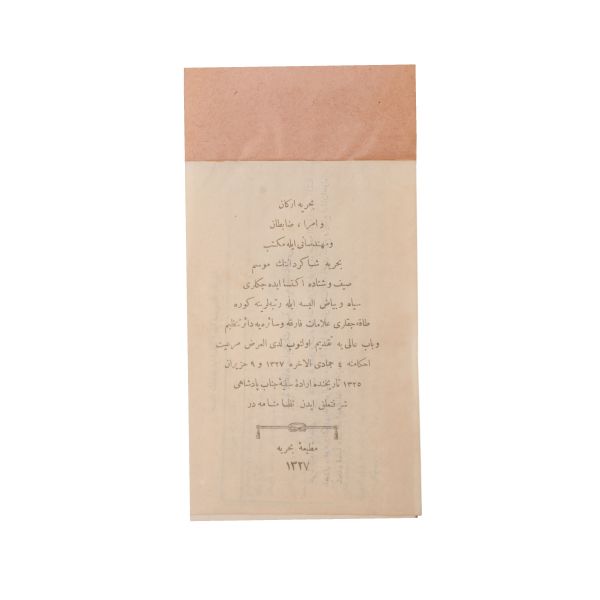 بحریه ارکان
و امرا ، ضابطان
و مهندسانی ایله مکتب
بحریه شاکرداننك موسم
صیف و شتاده اکتسا ایده جکلری
سیاه و بیاض البسه ایله رتبه لرینه کوره
طاقه جقلری علامات فارقه و سائره یه دائر تنظیم
و باب عالی یه تقدیم اولنوب لدی العرض مرعیت
احکامنه ٤ جمادی الاخره ١٣٢٧ و ٩ حزیران
١٣٢٥ تاریخنده ارادهٔ سنیهٔ جناب پادشاهی
شرفتعلق ایدن نظامنامه در
مطبعهٔ بحریه
١٣٢٧